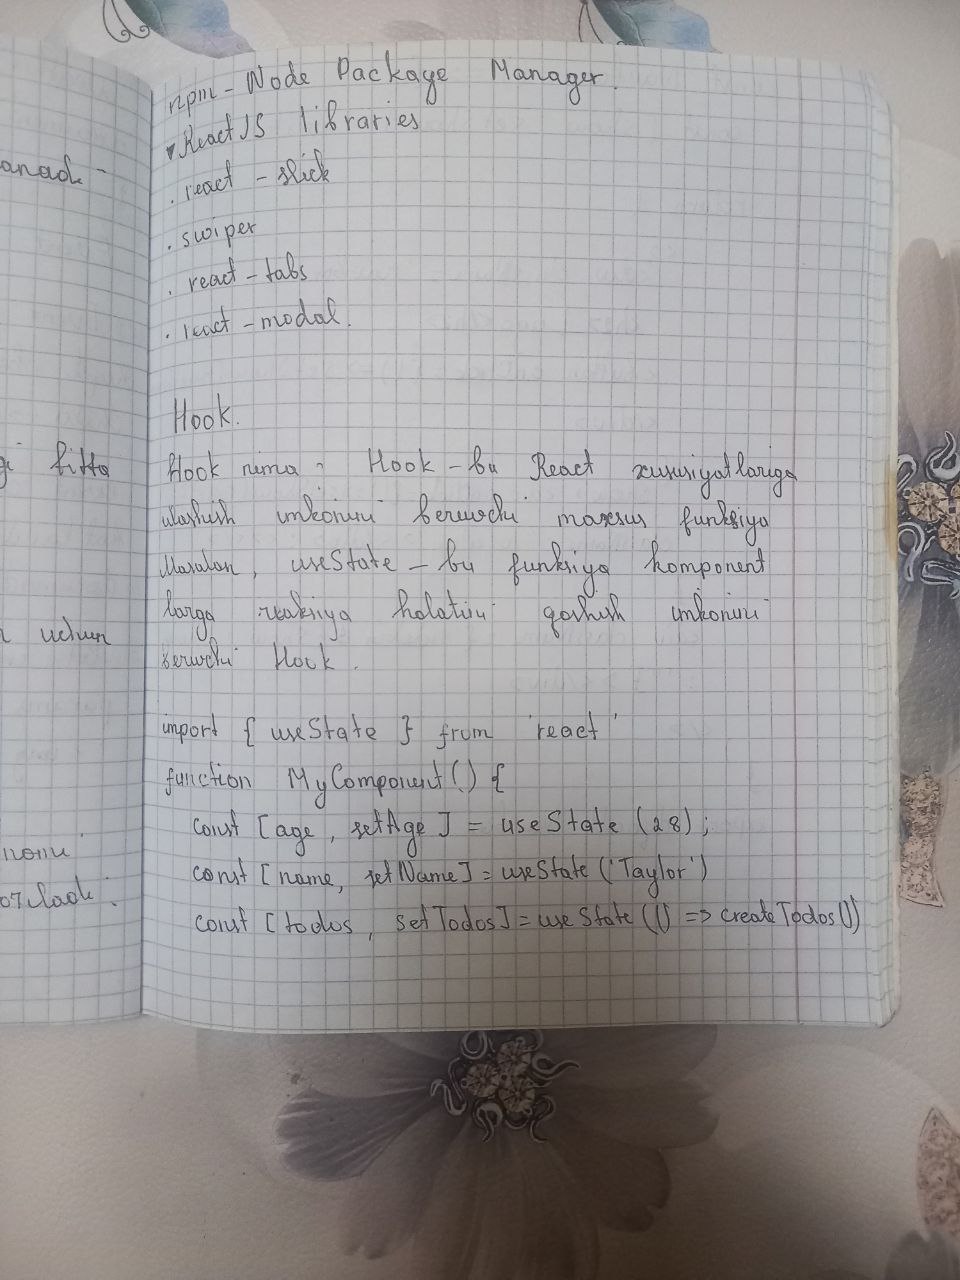 npm - Node Package Manager.
ReactJS libraries
. react - slick
. swiper
. react - tabs
. react - modal.
Hook.
Hook nima? Hook - bu React xususiyatlariga
ulashish imkonini beruvchi maxsus funksiya
Masalan, useState - bu funksiya komponent
larga reaksiya holatini qoshish imkonini
beruvchi Hook.
import { useState } from 'react'
function MyComponent() {
const [age, setAge] = useState (28);
const [name, setName] = useState ('Taylor')
const [todos, setTodos] = useState (() => createTodos())
bitta
uchun